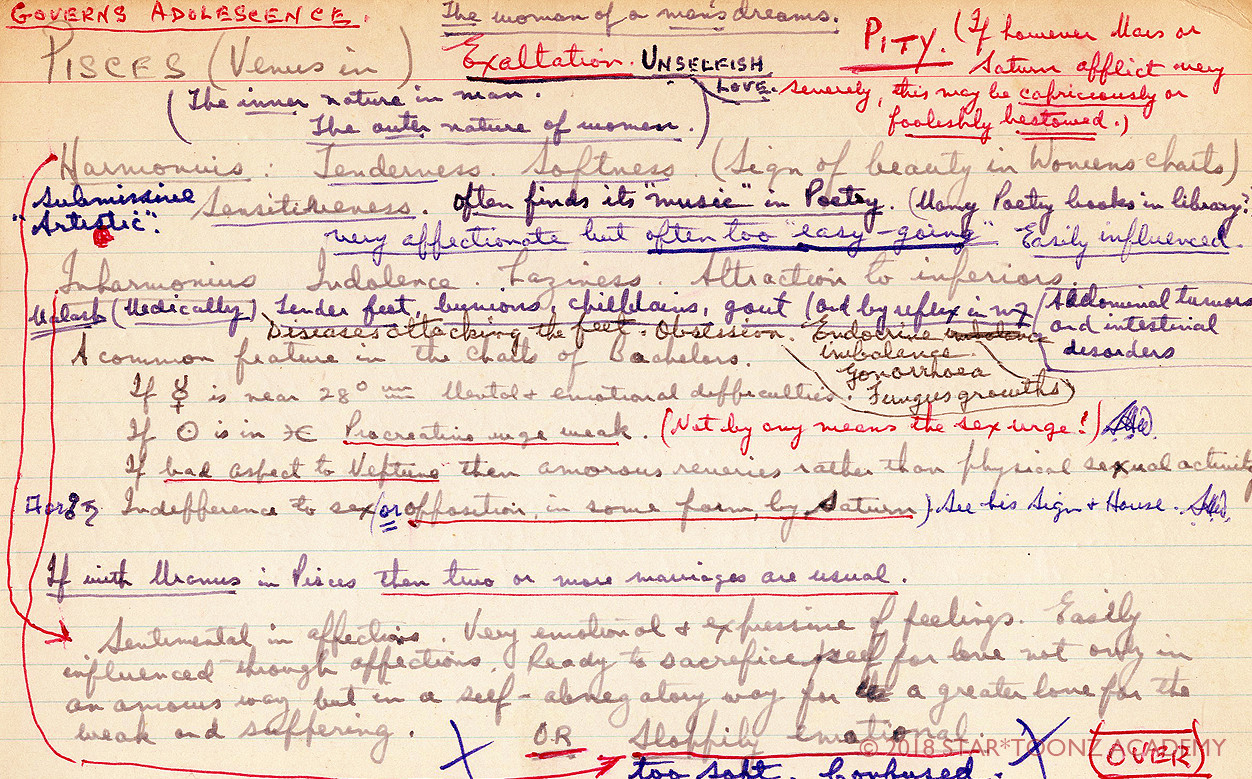 GOVERNS ADOLESCENCE.
The woman of a man's dreams.
PISCES (Venus in )
Exaltation. UNSELFISH LOVE.
PITY. (If however Mars or
Saturn afflict very
severely, this may be capriciously or
foolishly bestowed.)
(The inner nature in man.
The outer nature of women.)
Harmonius: Tenderness. Softness. (Sign of beauty in Womens charts)
Submissive
"Artistic".
Sensitiveness. often finds its "music" in Poetry. (Many Poetry books in library?
very affectionate but often too "easy-going" Easily influenced.
Inharmonius Indolence. Laziness. Attraction to inferiors
Weak (Medically) Tender feet, bunions, chillblains, gout (and by reflex in ♍
(Abdominal tumors
and intestinal
disorders
Disease attacking the feet. Obsession. Endocrine imbalance
imbalance.
Gonorrhoea
Fungus growths)
A common feature in the charts of Bachelors.
If ☿ is near 28° ♒ Mental & emotional difficulties.
If ☉ is in ♓ Procreative urge weak. (Not by any means the sex urge!)
If bad aspect to Neptune then amorous reveries rather than physical sexual activity
□ or ☍ ♄ Indefference to sex (or opposition, in some form, by Saturn) See his Sign & House.
If with Uranus in Pisces then two or more marriages are usual.
Sentimental in affections. Very emotional & expressive of feelings. Easily
influenced through affections. Ready to sacrifice self for love not only in
an amorous way but in a self-abnegatory way for a greater love for the
weak and suffering.
OR Sloppily emotional.
too soft. Confused.
(OVER)
© 2018 STAR*TOONZ ACADEMY